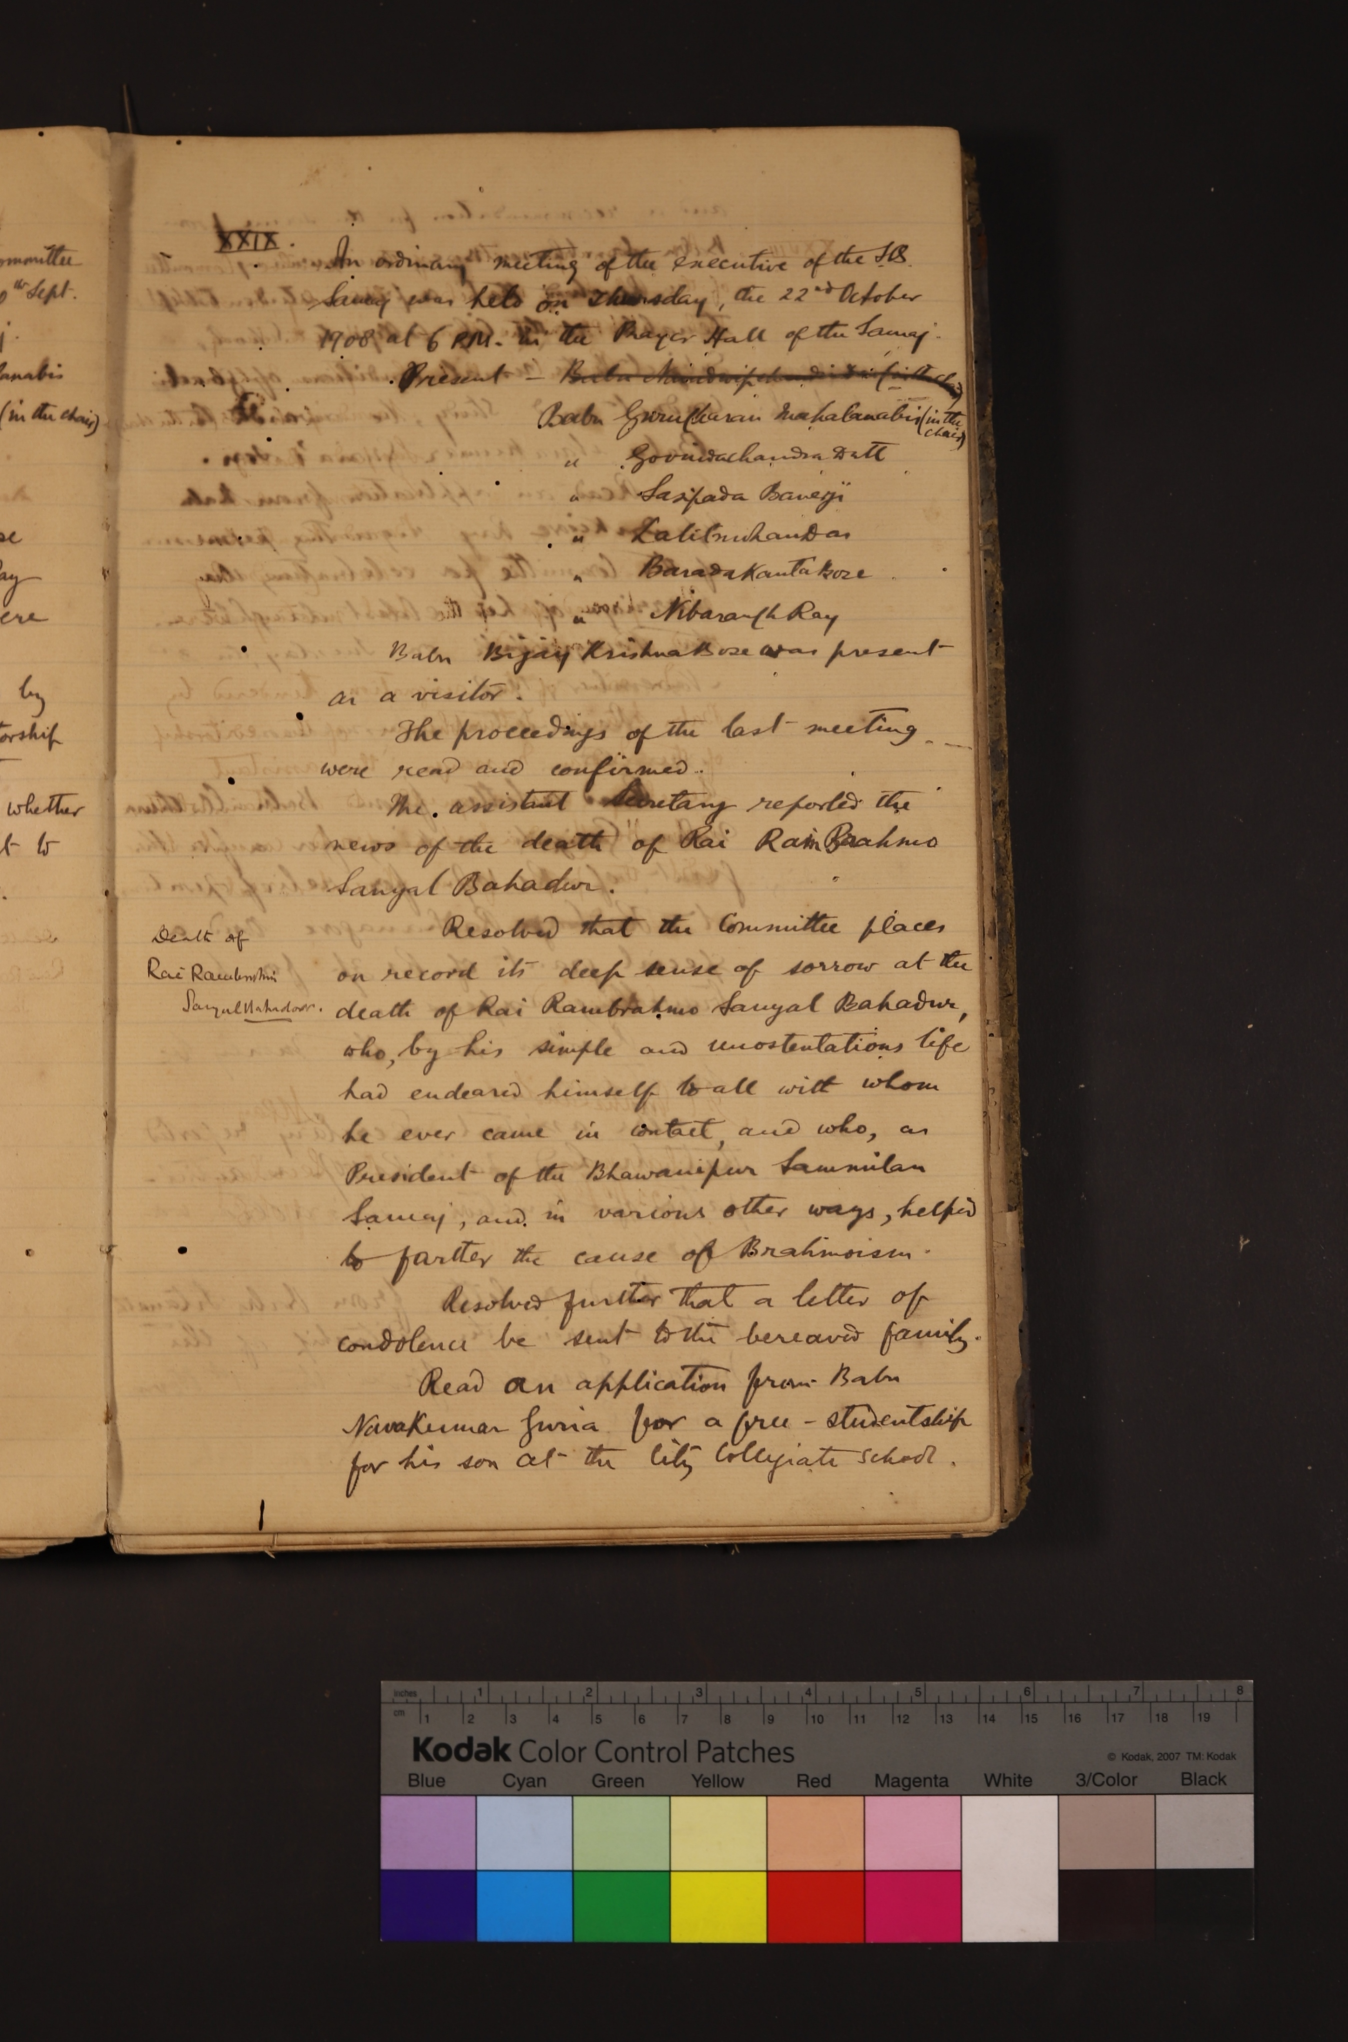 ommittee
0th Sept.
j.
anabis
(in the chair)
se
ay
ere
by
torship
whether
t to
XXIX.
An ordinary meeting of the executive of the S.B.
Samaj was held on Thursday, the 22nd October
1908 at 6 P.M. in the Prayer Hall of the Samaj.
Present — Babu
Babu Gurucharan Mahalanabis (in the
chair)
" Govindachandra Datt
" Sasipada Banerji
" Lalitmohan Das
" Baradakanta Bose
" Nibaran Ch Ray
Babu Bijay Krishna Bose was present
as a visitor.
The proceedings of the last meeting
were read and confirmed.
The assistant Secretary reported the
news of the death of Rai Ram Brahmo
Sanyal Bahadur.
Resolved that the Committee places
Death of
on record its deep sense of sorrow at the
Rai Rambrahmo
death of Rai Rambrahmo Sanyal Bahadur,
Sanyal Bahadoor.
who, by his simple and unostentatious life
had endeared himself to all with whom
he ever came in contact, and who, as
President of the Bhawanipur Sammilan
Samaj, and in various other ways, helped
to further the cause of Brahmoism.
Resolved further that a letter of
condolence be sent to the bereaved family.
Read an application from Babu
Navakumar for a free-studentship
for his son at the City Collegiate School.
inches 1 2 3 4 5 6 7 8
cm 1 2 3 4 5 6 7 8 9 10 11 12 13 14 15 16 17 18 19
Kodak Color Control Patches
© Kodak, 2007 TM: Kodak
Blue Cyan Green Yellow Red Magenta White 3/Color Black